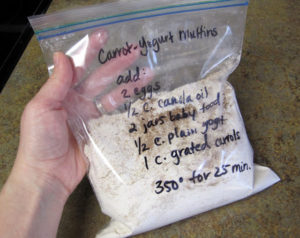 Carrot-Yogurt Muffins
add:
2 eggs
1/2 c. canola oil
2 jars baby food
1/2 c. plain yogt
1 c. grated carrots
350° for 25 min.